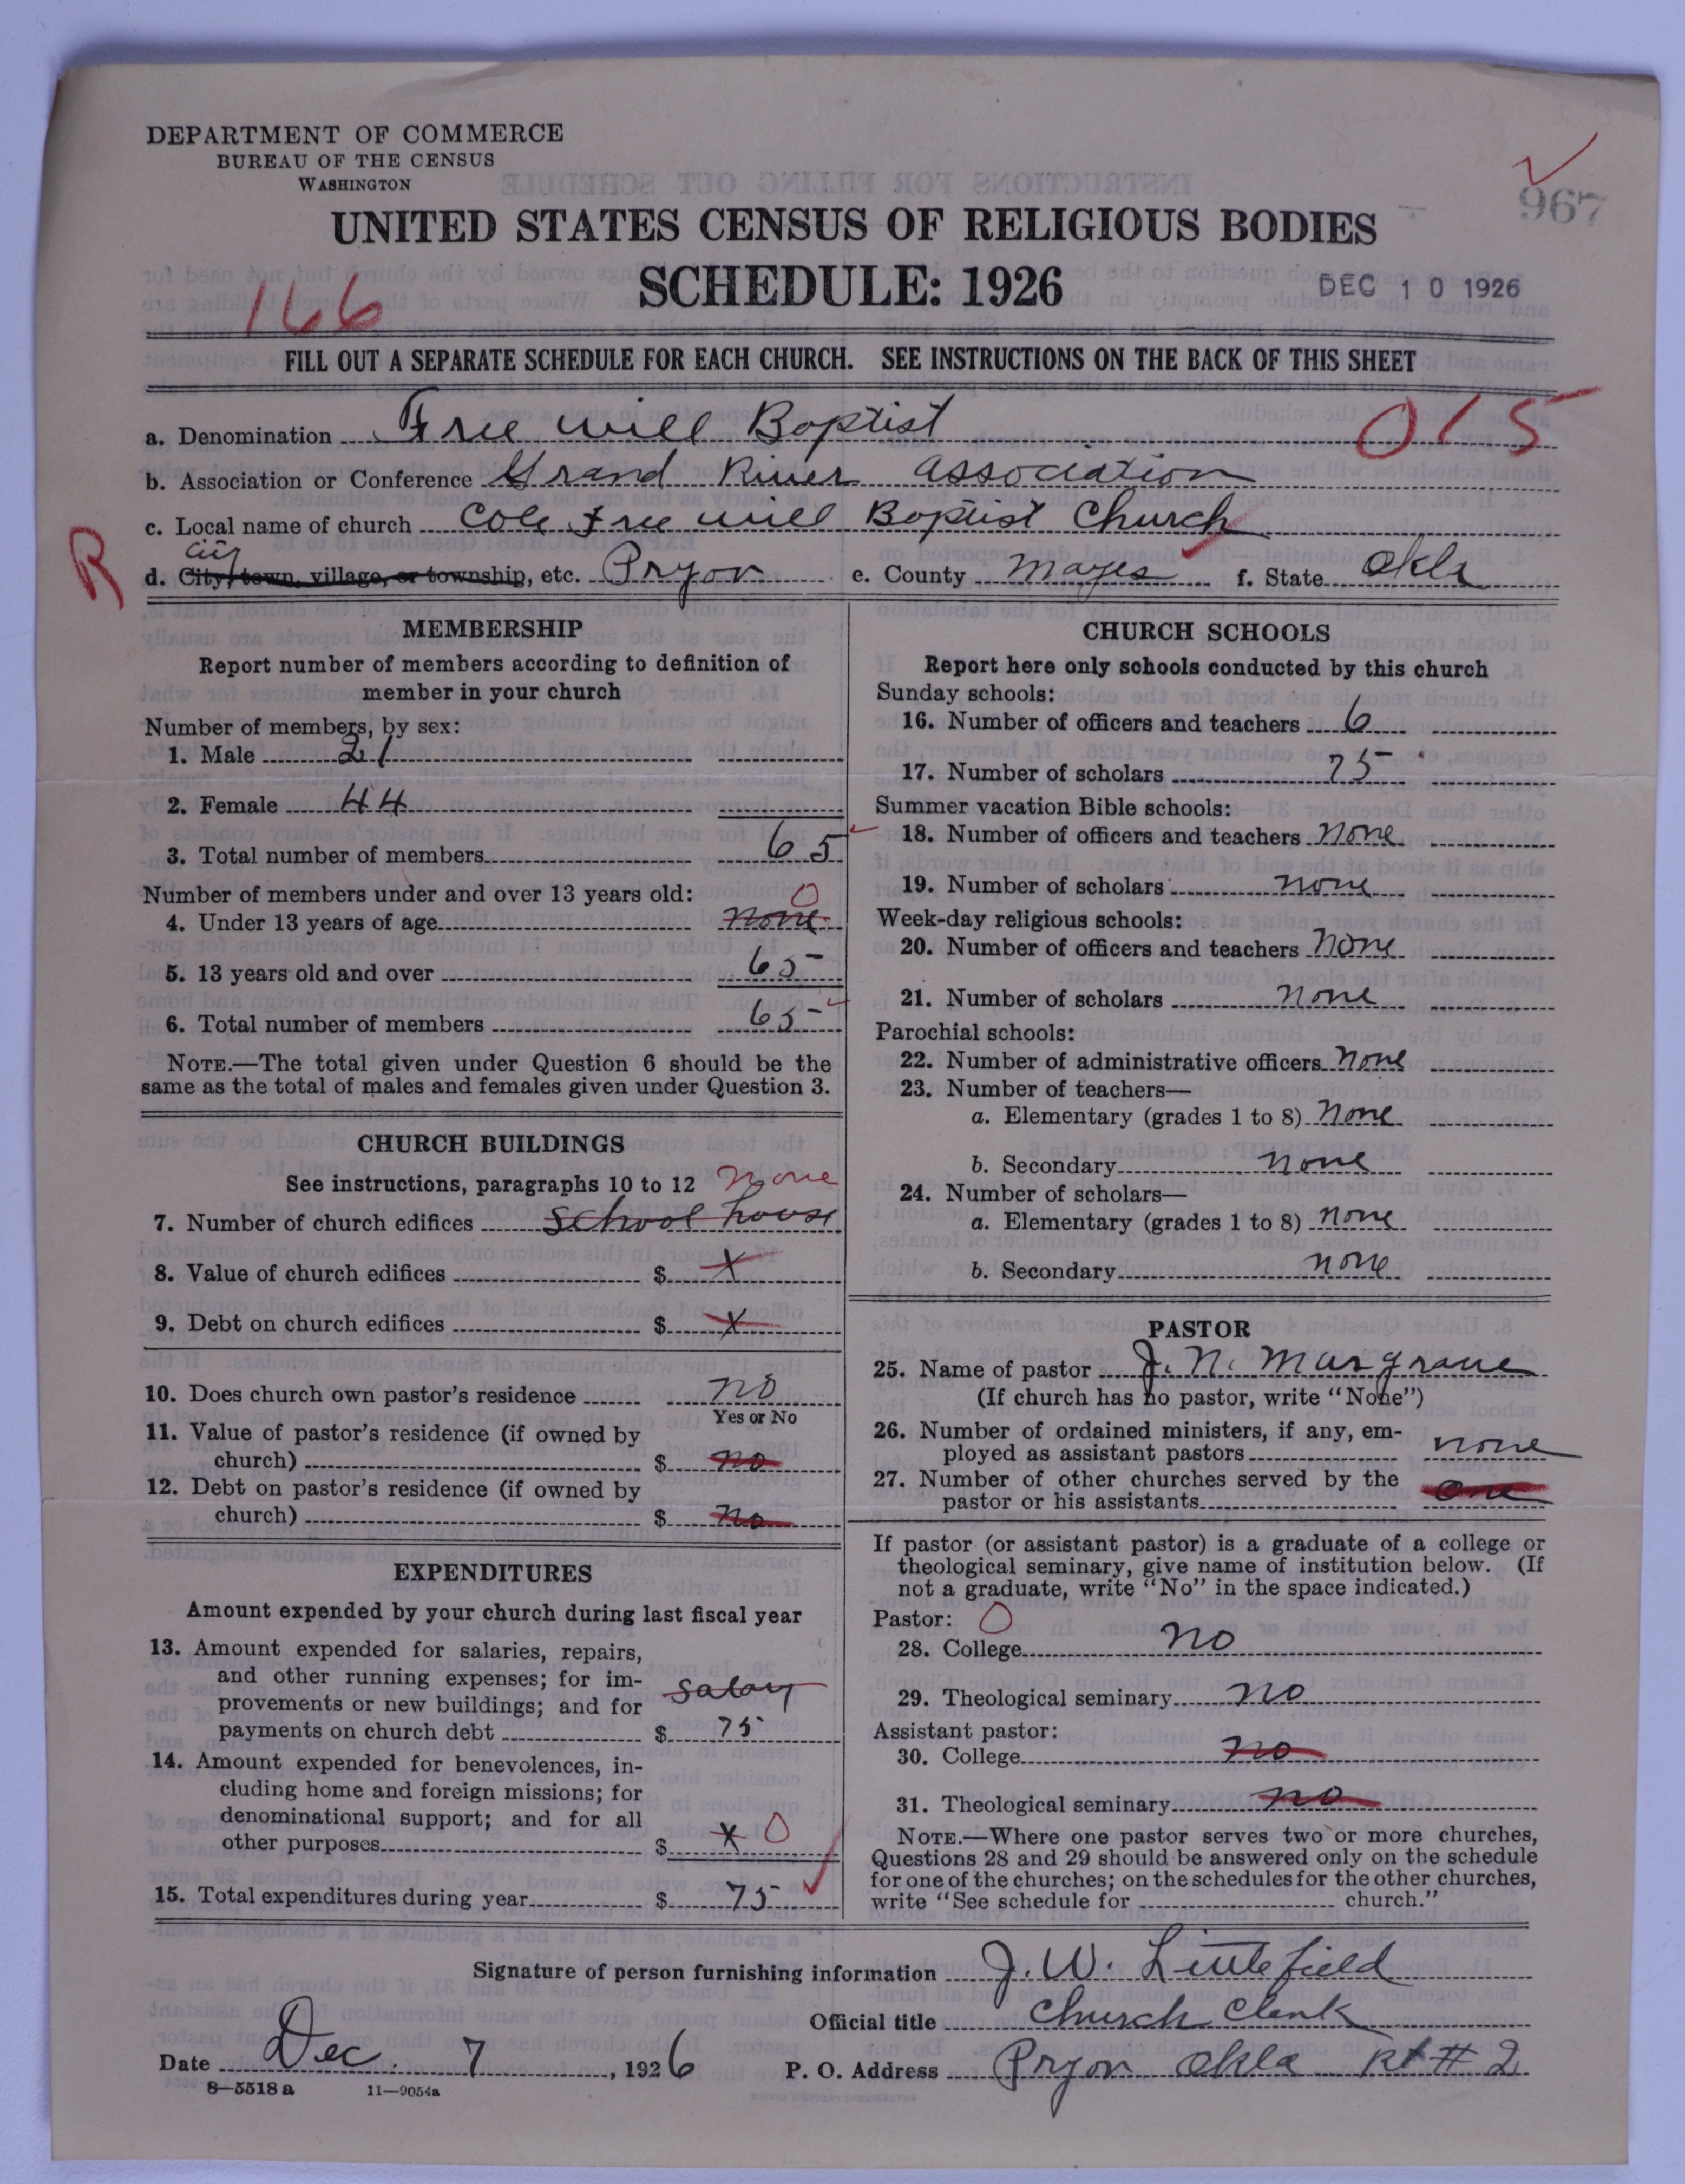 DEPARTMENT OF COMMERCE
BUREAU OF THE CENSUS
WASHINGTON
967
UNITED STATES CENSUS OF RELIGIOUS BODIES
SCHEDULE: 1926
DEC 10 1926
166
FILL OUT A SEPARATE SCHEDULE FOR EACH CHURCH. SEE INSTRUCTIONS ON THE BACK OF THIS SHEET
a. Denomination Free will Baptist 015
b. Association or Conference Grand River association
c. Local name of church Cole Free will Baptist Church
R
city
d. City, town, village, or township, etc. Pryor e. County Mayes f. State Okla
MEMBERSHIP
Report number of members according to definition of
member in your church
Number of members, by sex:
1. Male 21
2. Female 44
3. Total number of members 65
Number of members under and over 13 years old: 0
4. Under 13 years of age none
5. 13 years old and over 65
6. Total number of members 65
NOTE.—The total given under Question 6 should be the
same as the total of males and females given under Question 3.
CHURCH BUILDINGS
See instructions, paragraphs 10 to 12 none
7. Number of church edifices school house
8. Value of church edifices $ X
9. Debt on church edifices $ X
10. Does church own pastor's residence no
Yes or No
11. Value of pastor's residence (if owned by
church) $ no
12. Debt on pastor's residence (if owned by
church) $ no
EXPENDITURES
Amount expended by your church during last fiscal year
13. Amount expended for salaries, repairs,
and other running expenses; for im-
provements or new buildings; and for salary
payments on church debt $ 75
14. Amount expended for benevolences, in-
cluding home and foreign missions; for
denominational support; and for all
other purposes $ X 0
15. Total expenditures during year $ 75
CHURCH SCHOOLS
Report here only schools conducted by this church
Sunday schools:
16. Number of officers and teachers 6
17. Number of scholars 75
Summer vacation Bible schools:
18. Number of officers and teachers none
19. Number of scholars none
Week-day religious schools:
20. Number of officers and teachers none
21. Number of scholars none
Parochial schools:
22. Number of administrative officers none
23. Number of teachers—
a. Elementary (grades 1 to 8) none
b. Secondary none
24. Number of scholars—
a. Elementary (grades 1 to 8) none
b. Secondary none
PASTOR
25. Name of pastor J. N. Margrave
(If church has no pastor, write "None")
26. Number of ordained ministers, if any, em-
ployed as assistant pastors none
27. Number of other churches served by the
pastor or his assistants one
If pastor (or assistant pastor) is a graduate of a college or
theological seminary, give name of institution below. (If
not a graduate, write "No" in the space indicated.)
Pastor: 0
28. College no
29. Theological seminary no
Assistant pastor:
30. College no
31. Theological seminary no
NOTE.—Where one pastor serves two or more churches,
Questions 28 and 29 should be answered only on the schedule
for one of the churches; on the schedules for the other churches,
write "See schedule for church."
Signature of person furnishing information J. W. Littlefield
Official title Church Clerk
Date Dec. 7, 1926 P. O. Address Pryor Okla Rt # 2
8—5518 a 11—9054a